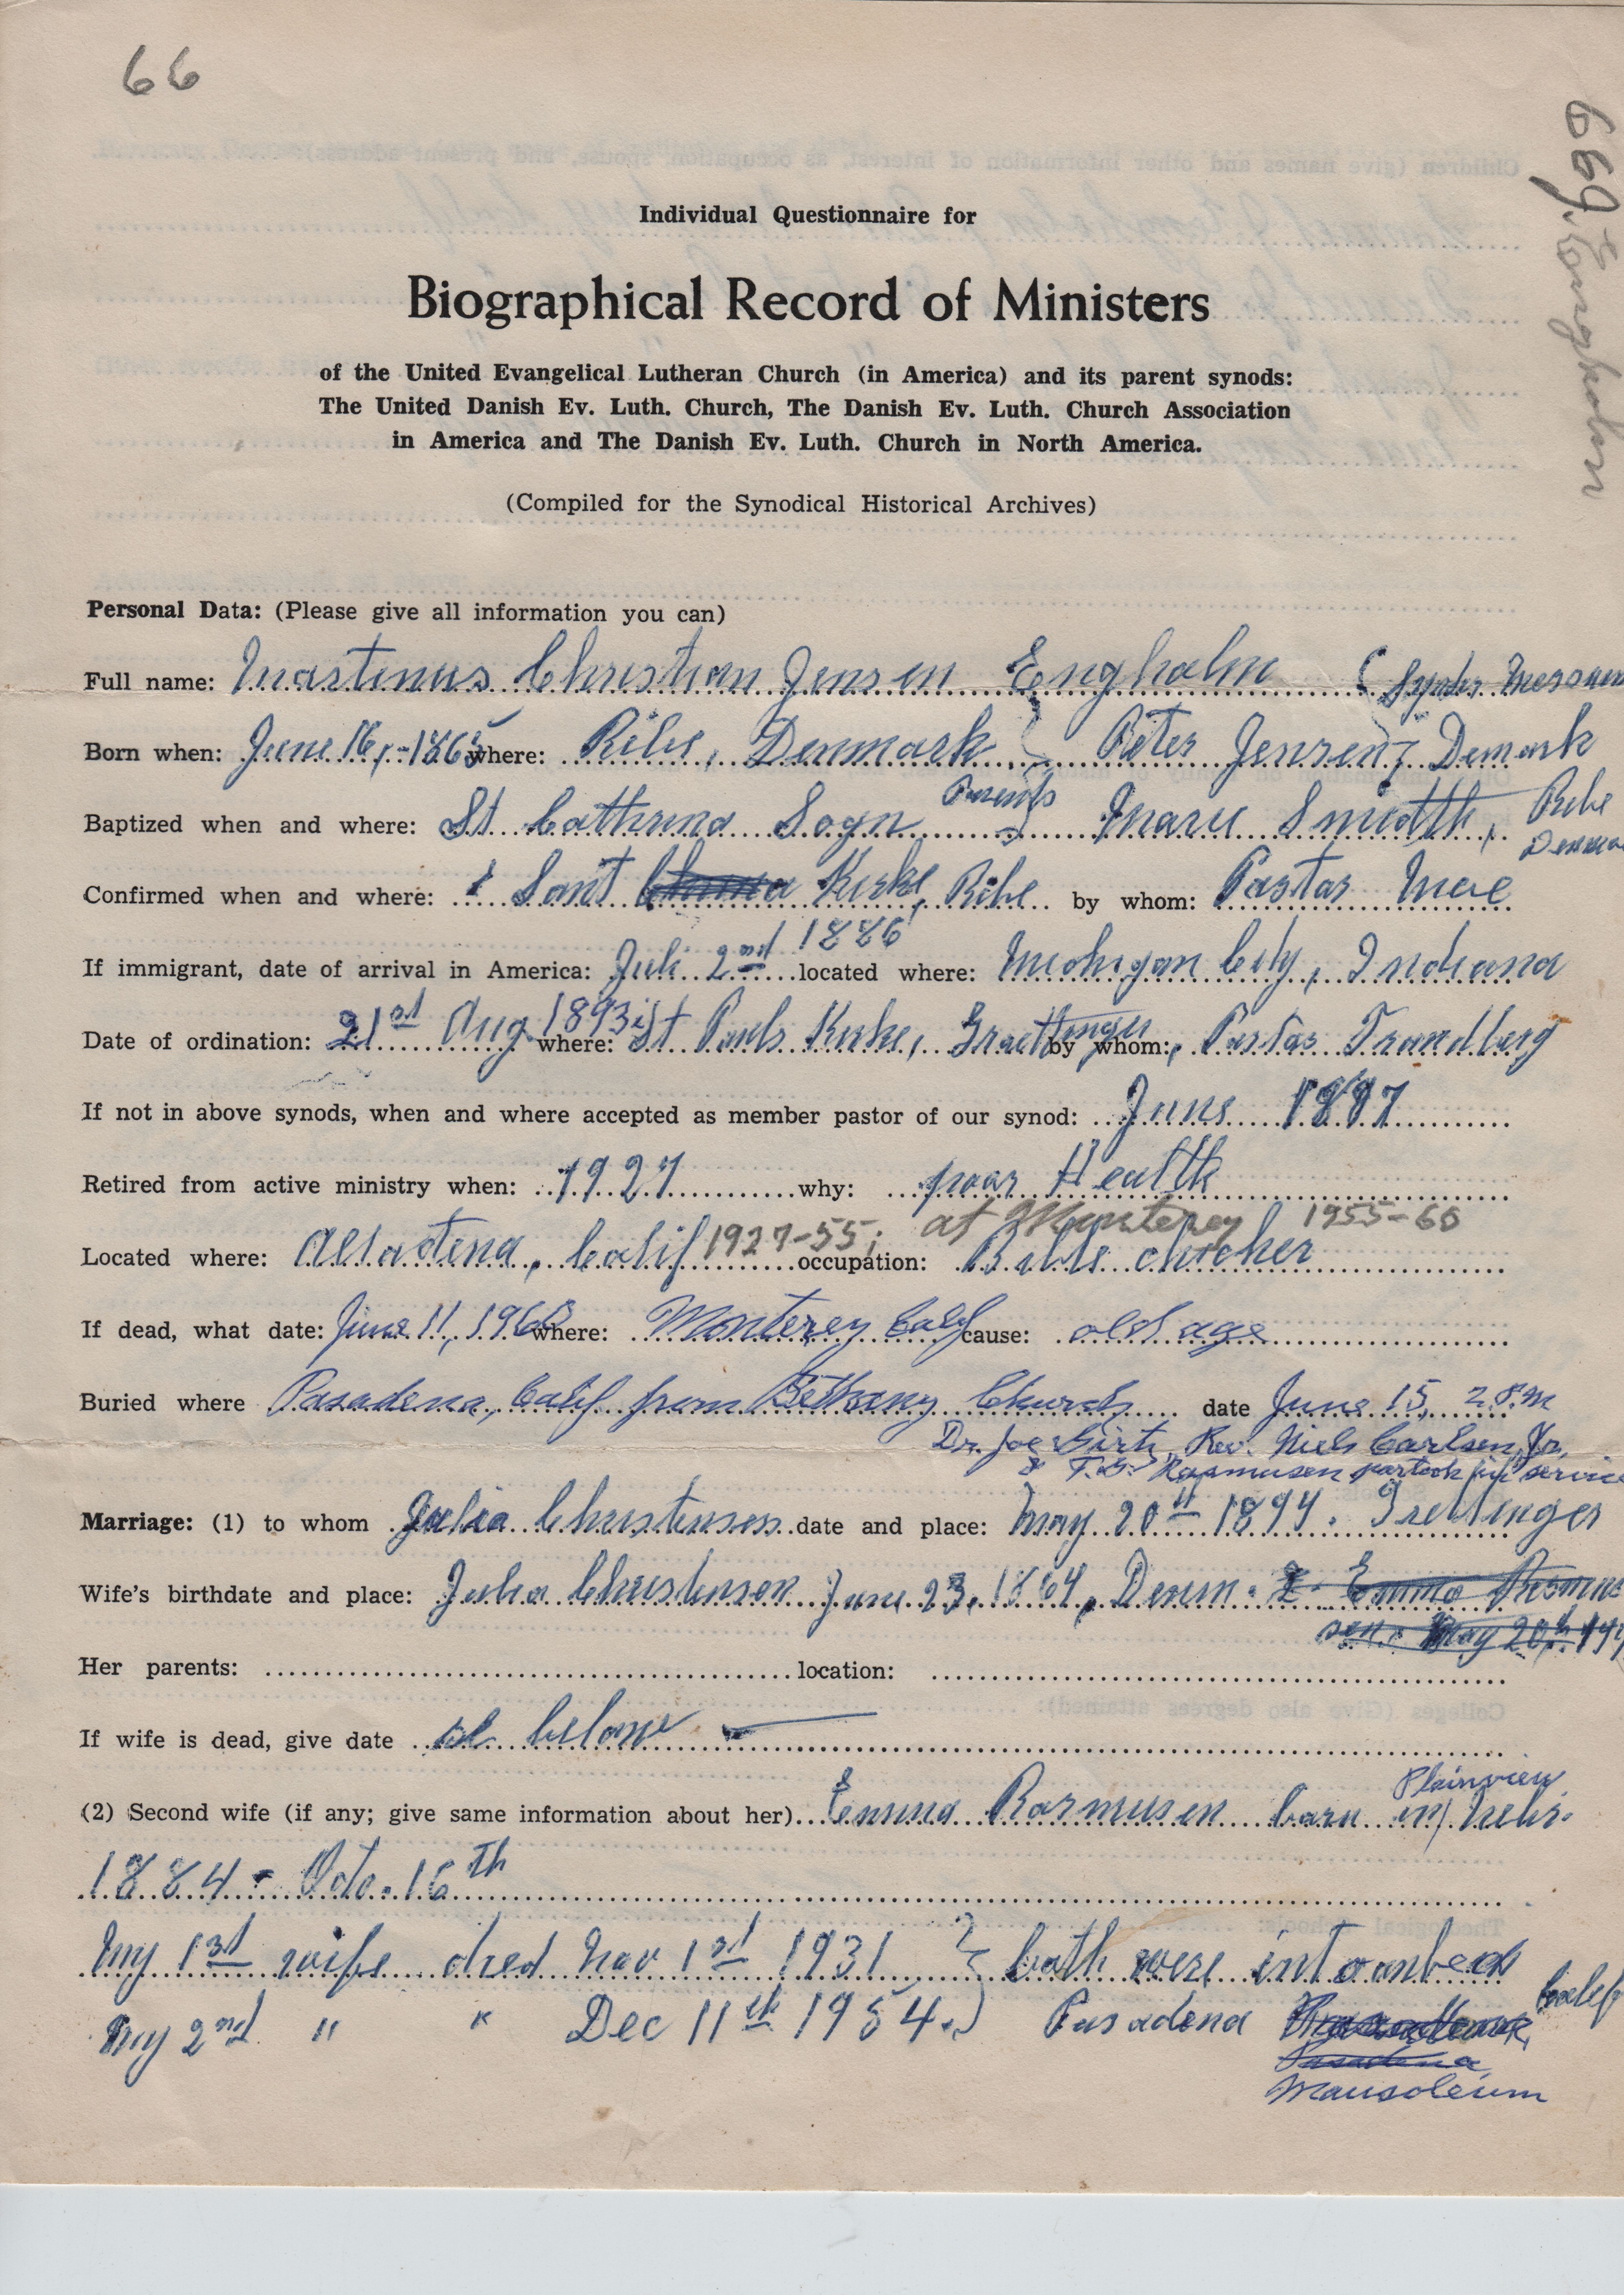 66
669. Engholm
Individual Questionnaire for
Biographical Record of Ministers
of the United Evangelical Lutheran Church (in America) and its parent synods:
The United Danish Ev. Luth. Church, The Danish Ev. Luth. Church Association
in America and The Danish Ev. Luth. Church in North America.
(Compiled for the Synodical Historical Archives)
Personal Data: (Please give all information you can)
Full name: Mastinus Christian Jensen Engholm (
Born when: June 16, -1865 where: Ribe, Denmark } Peter Jensen, Demark
Parents
Baptized when and where: St Cathrina Sogn } Marie Smidth, Ribe
Confirmed when and where: Sant Kirke, Ribe by whom: Pastor
If immigrant, date of arrival in America: Juli 2nd 1886 located where: Michigan City, Indiana
Date of ordination: 21st Aug 1893 where: St Pauls Kirke, Graettinger by whom: Pastor Trandberg
If not in above synods, when and where accepted as member pastor of our synod: June 1897
Retired from active ministry when: 1927 why: poor Health
Located where: Altadena, Calif 1927-55; at Monterey 1955-60 occupation: Bible
If dead, what date: June 11, 1960 where: Monterey Calif cause: old age
Buried where Pasadena, Calif from Bethany Church date June 15, 2 P.M
Dr. Joe Girtz, Rev. Niels Carlsen, Jr,
& T.G. Rasmussen partook in service
Marriage: (1) to whom Julia Christensen date and place: May 20th 1894. Grettinger
Wife's birthdate and place: Julia Christensen June 23, 1864, Denm.
Her parents: location:
If wife is dead, give date se below
(2) Second wife (if any; give same information about her) Emma Rasmusen born in Plainview Nebr.
1884 - Octo. 16th
My 1st wife died Nov 1st 1931 } both were intombed
My 2nd " " Dec 11th 1954.) Pasadena Calif
Pasadena
Mausoleum